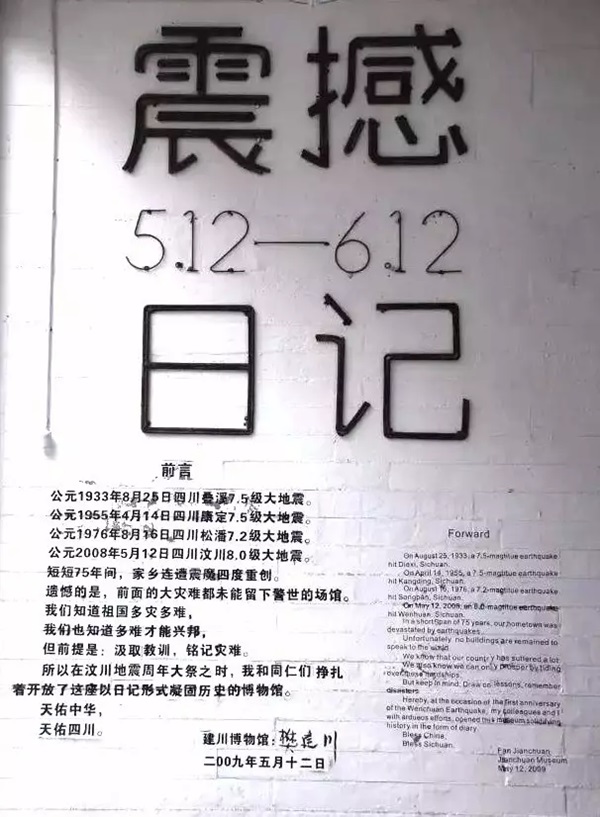 震撼
5.12—6.12
日记
前言
公元1933年8月25日四川叠溪7.5级大地震。
公元1955年4月14日四川康定7.5级大地震。
公元1976年8月16日四川松潘7.2级大地震。
公元2008年5月12日四川汶川8.0级大地震。
短短75年间，家乡连遭震魔四度重创。
遗憾的是，前面的大灾难都未能留下警世的场馆。
我们知道祖国多灾多难，
我们也知道多难才能兴邦，
但前提是：汲取教训，铭记灾难。
所以在汶川地震周年大祭之时，我和同仁们 挣扎
著开放了这座以日记形式凝固历史的博物馆。
天佑中华，
天佑四川。
建川博物馆：樊建川
二00九年五月十二日
Forward
On August 25, 1933, a 7.5-magtitue earthquake
hit Diexi, Sichuan.
On April 14, 1955, a 7.5-magtitue earthquake
hit Kangding, Sichuan.
On August 16, 1976, a 7.2-magtitue earthquake
hit Songpan, Sichuan.
On May 12, 2008, an 8.0-magtitue earthquake
hit Wenhuan, Sichuan.
In a short span of 75 years, our hometown was
devastated by earthquakes.
Unfortunately, no buildings are remained to
speak to the world.
We know that our country has suffered a lot.
We also know we can only prosper by tiding
over those hardships.
But keep in mind: Draw on lessons, remember
disasters.
Hereby, at the occasion of the first anniversary
of the Wenchuan Earthquake, my colleagues and I
with arduous efforts, opened this museum solidifying
history in the form of diary.
Bless China,
Bless Sichuan.
Fan Jianchuan
Jianchuan Museum
May 12, 2009